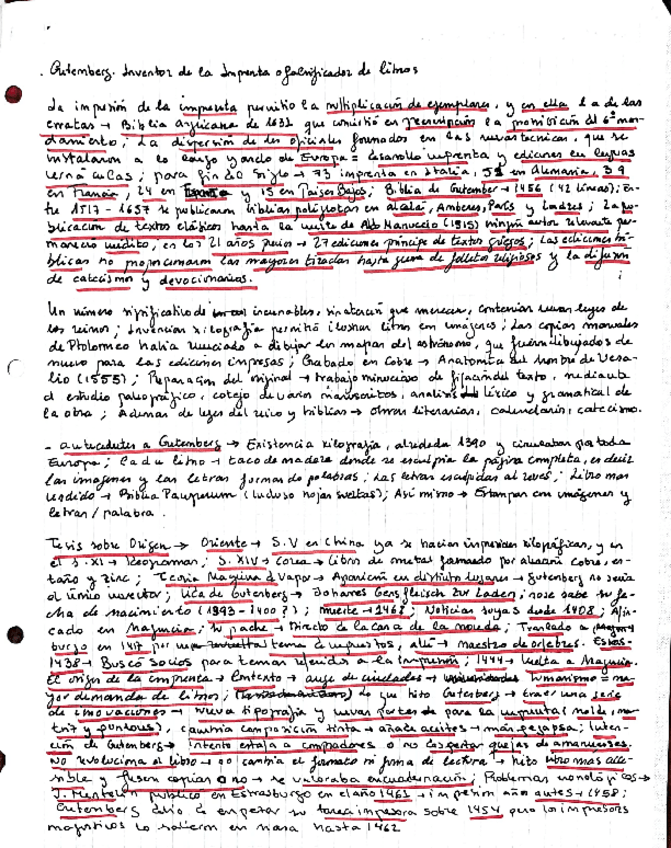 . Gutemberg. Inventor de la Imprenta o falsificador de libros
La impresión de la imprenta permitio la multiplicación de ejemplares, y en ella la de las
erratas → Biblia anglicana de 1631 que omitió en la prohibición del 6º man-
damiento; La dispersión de los oficiales formados en las nuevas tecnicas, que se
instalaron a lo largo y ancho de Europa = desarrollo imprenta y ediciones en lenguas
vernáculas; para fin de siglo → 73 imprenta en Italia, 51 en Alemania, 39
en Francia, 24 en España y 15 en Paises Bajos; Biblia de Gutember → 1456 (42 lineas); En-
tre 1517 - 1657 se publicaron biblias poliglotas en alcalá, Amberes, París y Londres; La pu-
blicacion de textos clásicos hasta la muerte de Aldo Manuccio (1515) ningún autor relevante per-
maneció inédito, en los 21 años 27 ediciones príncipe de textos griegos; Las ediciones bí-
blicas no proporcionaron las mayores tiradas hasta guerra de folletos religiosos y la difusión
de catecismo y devocionarios.
Un número significativo de incunables, sin atención que merecen, contenian leyes de
los reinos; Invencion xilografia permitió ilustrar libros con imágenes; Las copias manuales
de Ptolomeo habia renunciado a dibujar los mapas del astrónomo, que fueron dibujados de
nuevo para las ediciones impresas; Grabado en Cobre → Anatomía del Hombre de Vesa-
lio (1555); Preparacion del original → trabajo minucioso de fijación del texto, mediante
el estudio paleográfico, cotejo de varios manuscritos, analisis léxico y gramatical de
la obra; Ademas de leyes del reino y biblias → obras literarias, calendario, catecismo.
- antecedentes a Gutemberg → Existencia xilografia, alrededor 1390 y circulaban por toda
Europa; Cada libro → taco de madera donde se esculpia la página completa, es decir
las imagenes y las letras formando palabras; Las letras esculpidas al reves; Libro mas
vendido → Biblia Pauperum (Incluso hojas sueltas); Asi mismo → Estampas con imágenes y
letras/palabra.
Tesis sobre Origen → Oriente → S.V en China ya se hacian impresiones xilográficas, y en
el S.XI → Ideogramas; S.XIV → Corea → libro de metal formado por aleacion cobre, es-
taño y zinc; Teoria Maquina d Vapor → Aparicion en distintos lugares → Gutenberg no seria
el unico inventor; Vida de Gutenberg → Johannes Gensfleisch zur Laden; no se sabe su fe-
cha de nacimiento (1393-1400?); muerte → 1468; Noticias suyas desde 1408; Afin-
cado en Maguncia; su padre → Directo de la casa de la moneda; Traslado a
burgo en 1417 por tema de impuestos, allí → maestro de orfebres.
1438 → Buscó socios para temas referidos a la impresión; 1444 → Vuelta a Maguncia.
El origen de la imprenta → Contexto → auge de ciudades → Humanismo = ma-
yor demanda de libros; Lo que hizo Gutenberg → traer una serie
de innovaciones → nueva tipografia y nuevas partes de para la imprenta (molde, ma-
triz y punzones), cambia composición tinta → añade aceites → más pegajosa; Inten-
ción de Gutenberg → intento estafa a compradores o no despertar quejas de amanuenses.
No revoluciona el libro → no cambia el formato ni forma de lectura → hizo libro mas acce-
sible y fuesen copias o no → se valoraba encuadernación; Problemas cronológicos →
J. Mentelin publicó en Estrasburgo en el año 1461 → impresion años antes → 1458;
Gutemberg debio de empezar su tarea impresora sobre 1454 pero los impresores
maguntinos lo salieron en masa hasta 1462